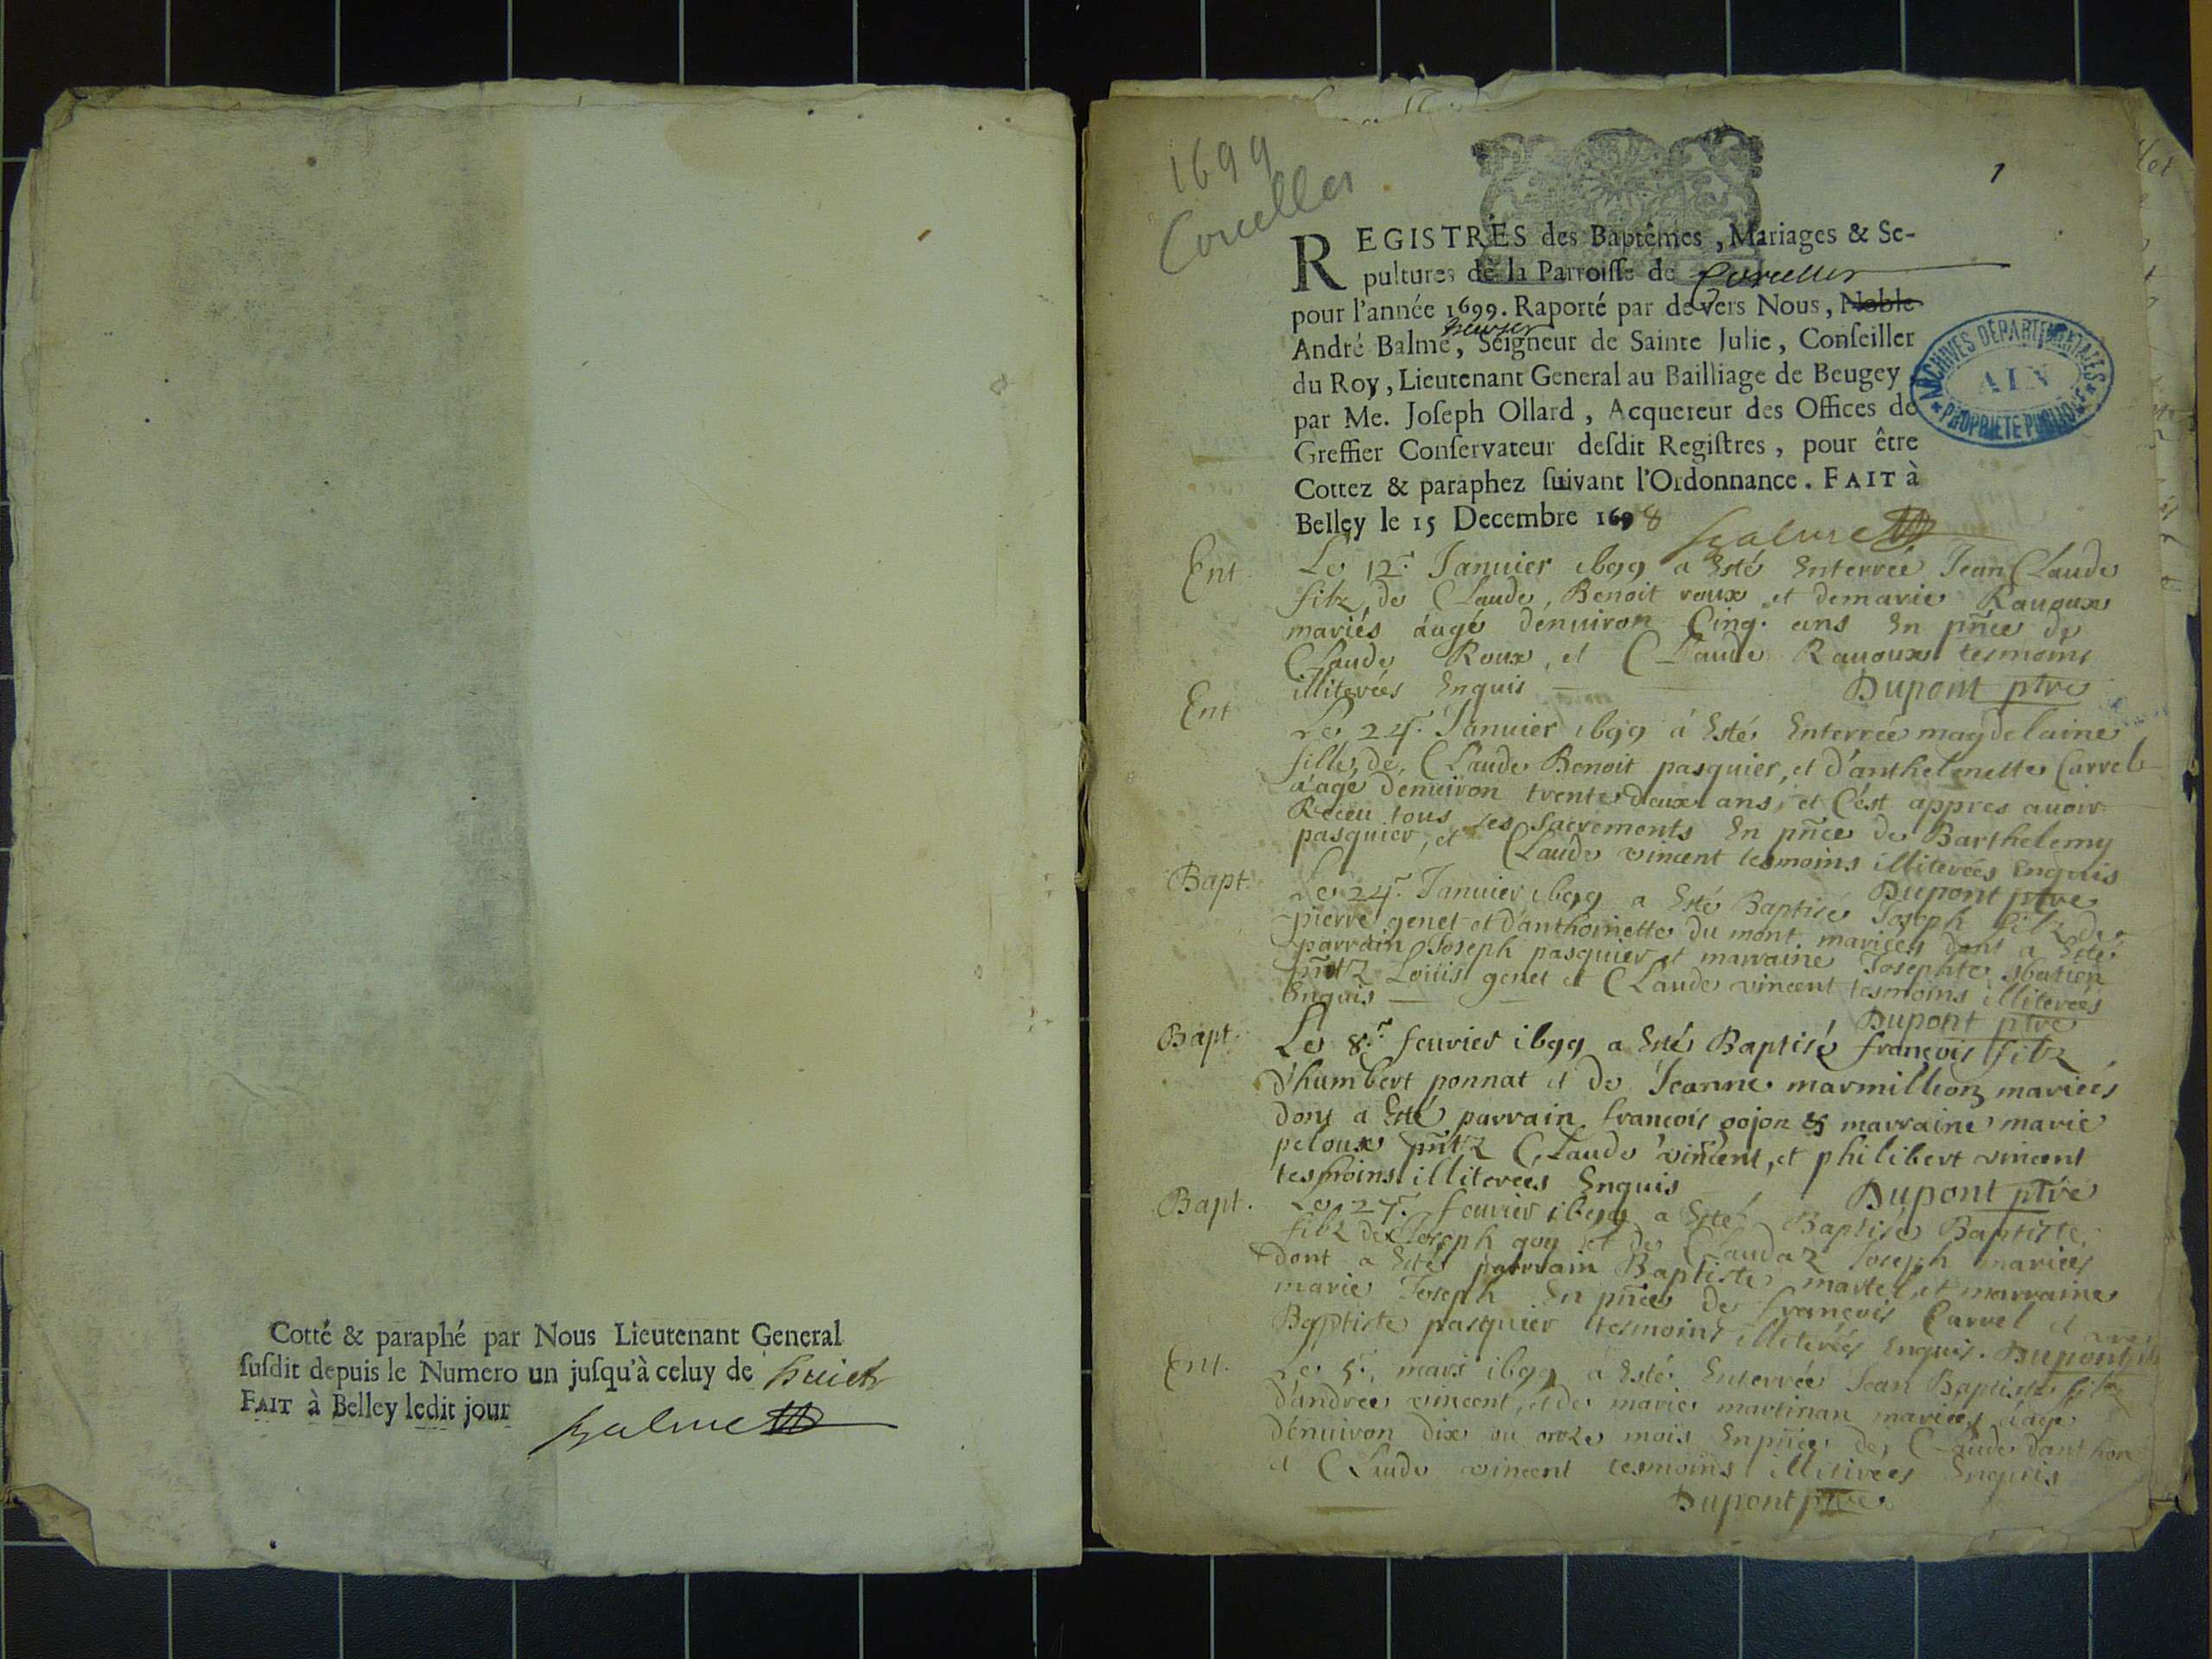 Cotté & paraphé par Nous Lieutenant General
ſuſdit depuis le Numero un juſqu'à celuy de huict
FAIT à Belley ledit jour
Balme
1699
Corcelles
1
REGISTRES des Baptêmes, Mariages & Se-
pultures de la Parroiſſe de Corcelles
pour l'année 1699. Raporté par devers Nous, Noble
André Balme, Seigneur de Sainte Julie, Conſeiller
du Roy, Lieutenant General au Bailliage de Beugey
par Me. Joſeph Ollard, Acquereur des Offices de
Greffier Conſervateur deſdit Regiſtres, pour être
Cottez & paraphez ſuivant l'Ordonnance. FAIT à
Belley le 15 Decembre 1698
Balme
ARCHIVES DÉPARTEMENTALES
AIN
PROPRIÉTÉ PUBLIQUE
Ent. Le 12.e Januier 1699 a Esté Enterreé Jean Claude
filz de Claude, Benoit roux et de marie Rauoux
mariés áagé denuiron Cinq. ans En pnce de
Claude Roux, et Claude Rauoux tesmoins
illiterées Enquis Dupont ptre
Ent Le 24.e Januier 1699 á Esté Enterreé magdelaine
fille de Claude Benoit pasquier, et d'anthelmette Carrel
áagé dénuiron trente deux ans, et Cést appres auoir
Receu tous les sacrements En pnce de Barthelemy
pasquier, et Claude vincent tesmoins illiterées Enquis
Dupont ptre
Bapt. Le 24.e Januier 1699 a Esté Baptisé Joseph filz de
pierre genet et d'anthoinette du mont mariées dont a Esté
parrain Joseph pasquier et marraine Josephte
pntz Louis genet et Claude vincent tesmoins illiterées
Enquis Dupont ptre
Bapt. Le 8.e feurier 1699 a Esté Baptisé françois filz
d'humbert ponnat et de Jeanne marmillion mariées
dont a Esté parrain françois gojon & marraine marie
peloux pntz Claude vincent, et philibert vincent
tesmoins illiterées Enquis Dupont ptre
Bapt. Le 27.e feurier 1699 a Esté Baptisé Baptiste
filz de Joseph goy et de Claudaz Joseph mariées
dont a Esté parrain Baptiste martel, et marraine
marie Joseph En pnce de françois Carrel et
Baptiste pasquier tesmoins illiterées Enquis. Dupont
Ent. Le 5.e mars 1699 á Esté Enterreé Jean Baptiste filz
d'andree vincent, et de marie martinan mariées áagé
dénuiron dix ou onze mois En pnce de Claude danthon
et Claude vincent tesmoins illiterées Enquis
Dupont ptre